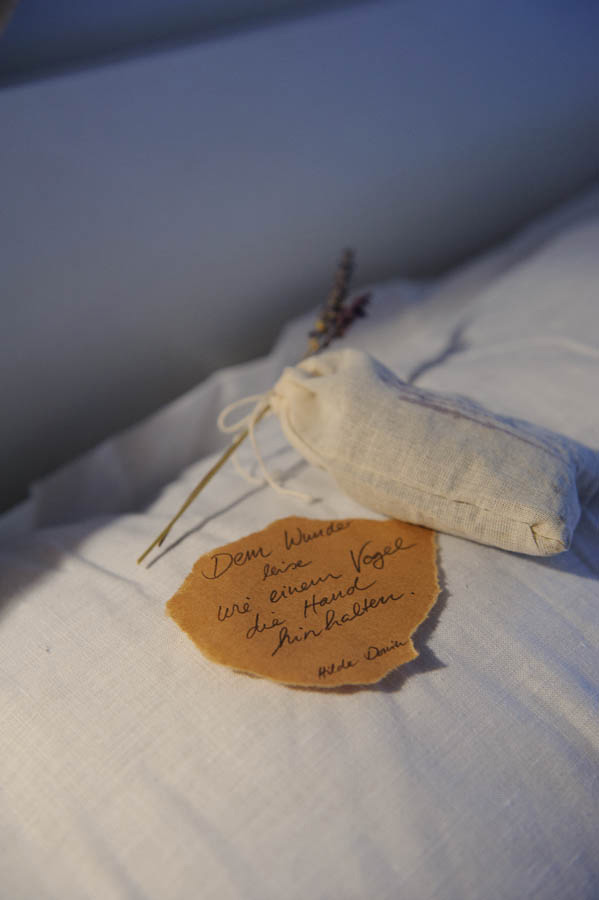 Dem Wunder
leise
wie einem Vogel
die Hand
hinhalten.
Hilde Domin